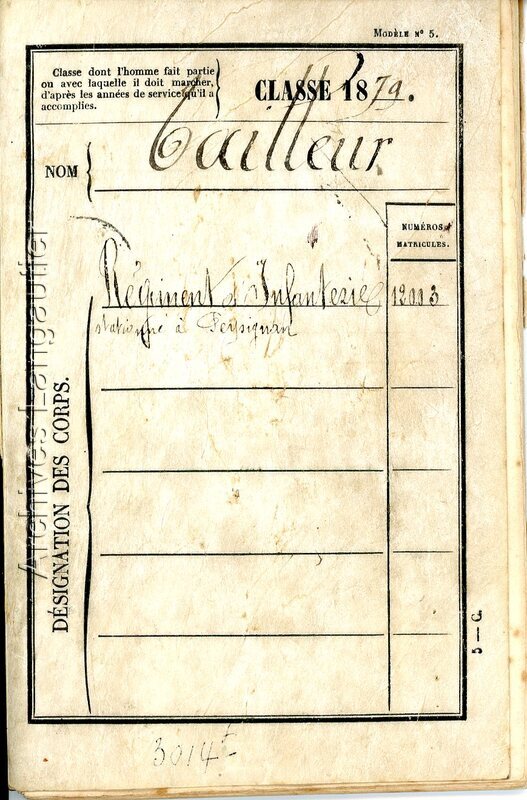 MODÈLE N° 5.
Classe dont l'homme fait partie
ou avec laquelle il doit marcher,
d'après les années de service qu'il a
accomplies.
CLASSE 1879.
NOM
Tailleur
NUMÉROS
MATRICULES.
Régiment d'Infanterie 12003
stationné à Perpignan
DÉSIGNATION DES CORPS.
Archives Langauller
5 — G.
3014